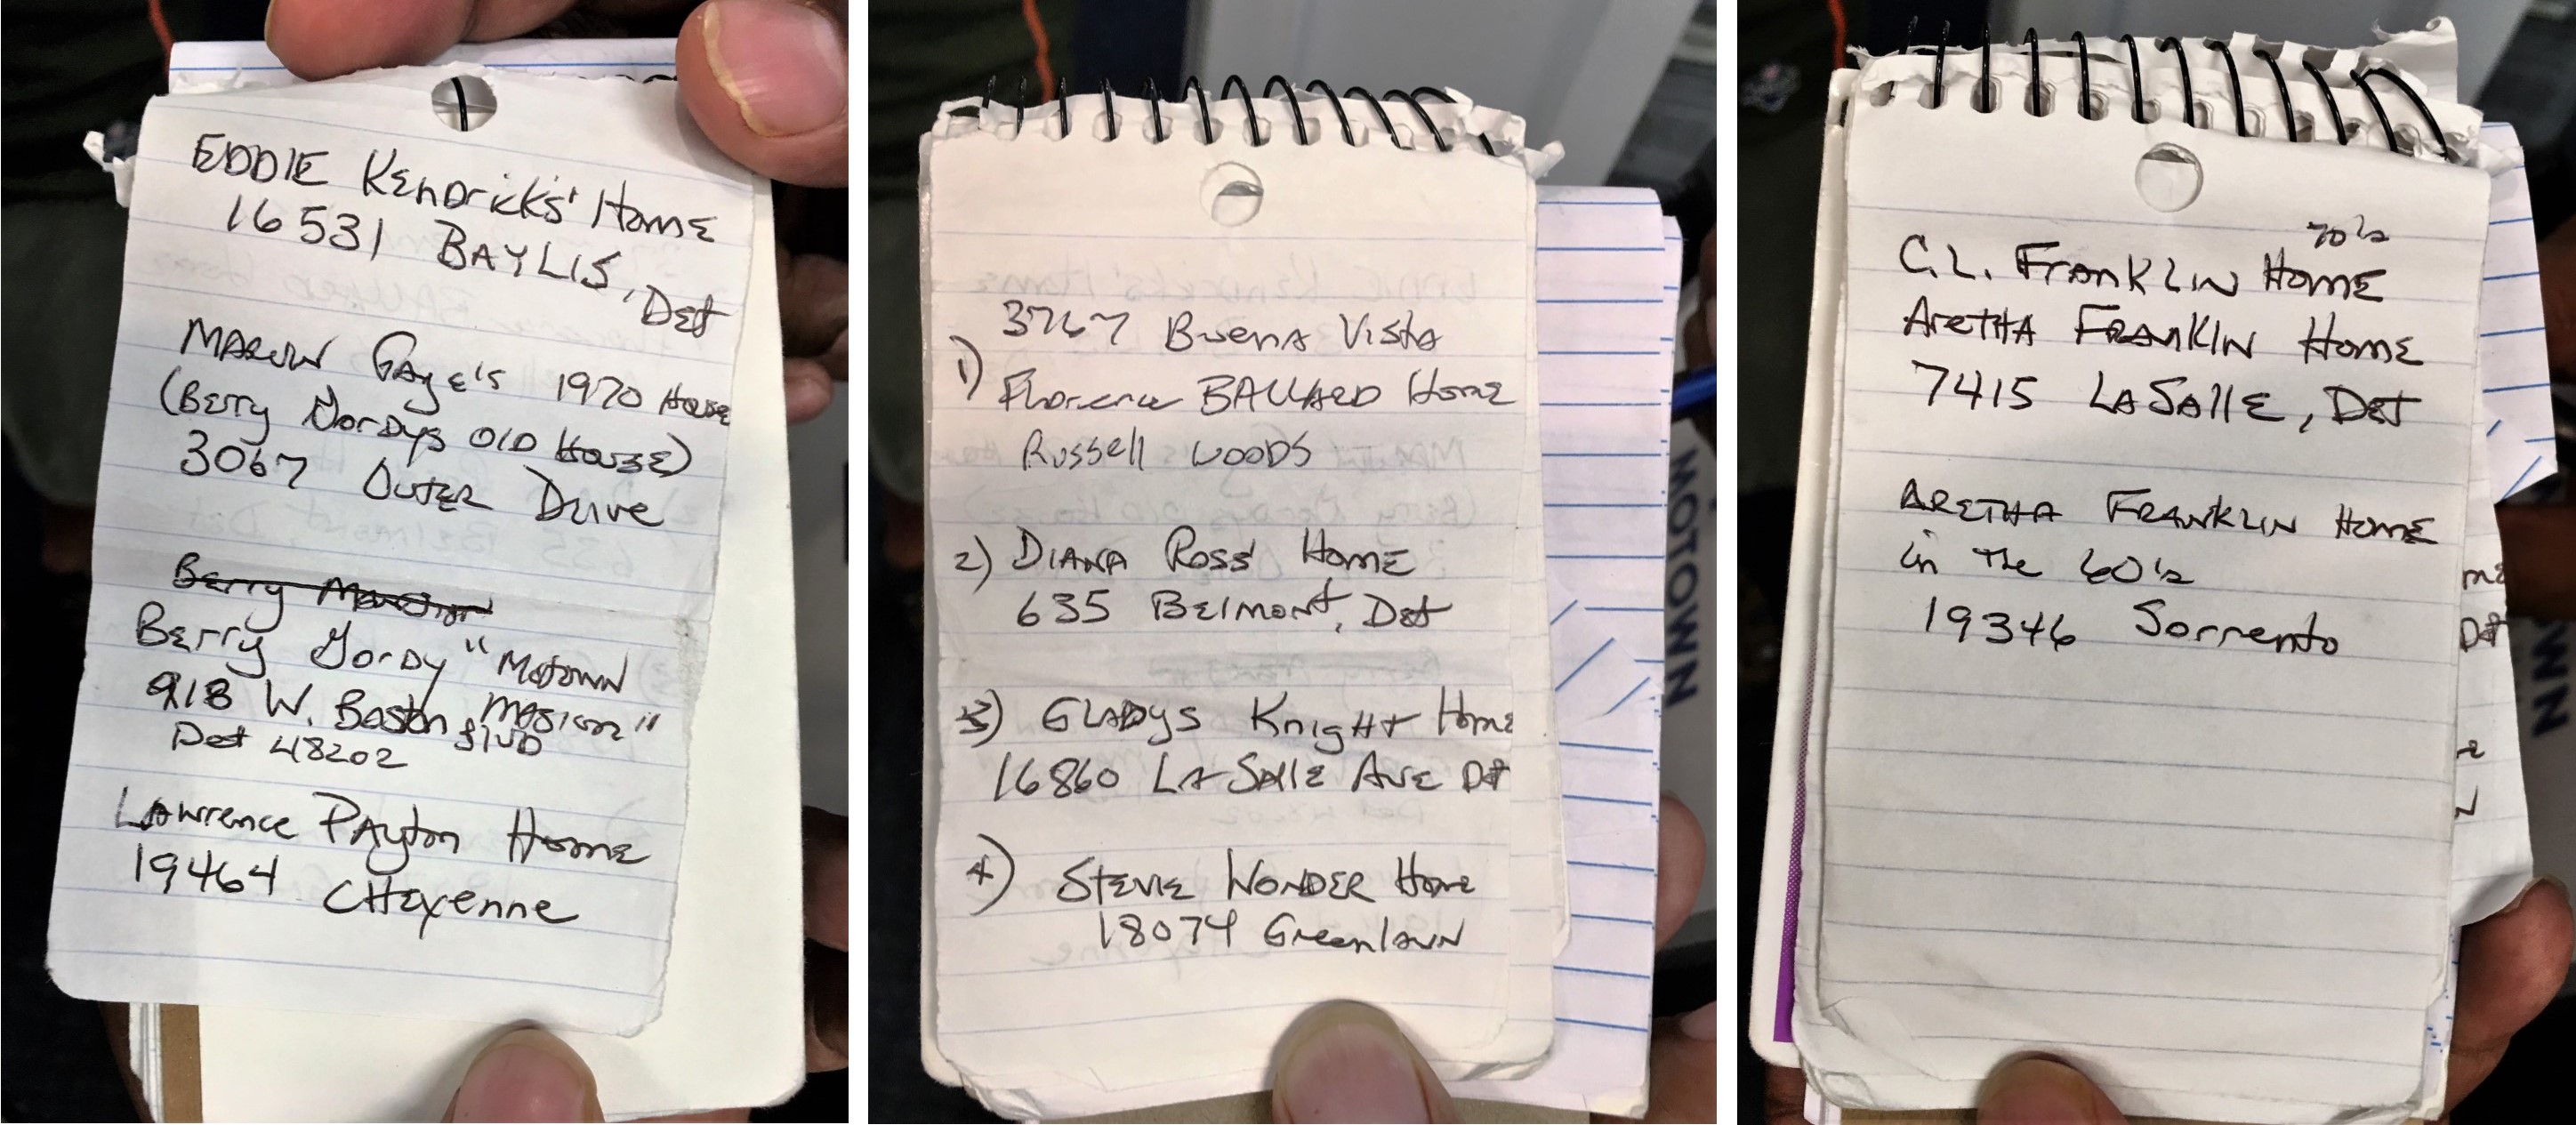 EDDIE KENDRICKS' HOME
16531 BAYLIS, Det
MARVIN GAYE'S 1970 House
(BERRY GORDYS OLD HOUSE)
3067 OUTER DRIVE
Berry Gordy "Motown
918 W. Boston Masion"
BLVD
Det 48202
Lawrence Payton Home
19464 CHEYENNE
3767 Buena Vista
1) Florence BALLARD Home
Russell WOODS
2) DIANA ROSS' HOME
635 BELMONT, Det
3) GLADYS Knight Home
16860 LA SALLE AVE Det
4) STEVIE WONDER Home
18074 Greenlawn
MOTOWN
70's
C.L. FRANKLIN HOME
ARETHA FRANKLIN HOME
7415 LASALLE, Det
ARETHA FRANKLIN HOME
in the 60's
19346 Sorrento
Det
WN